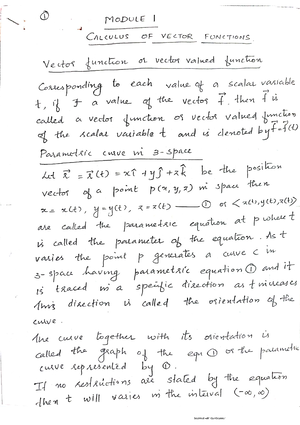 ①
MODULE 1
CALCULUS OF VECTOR FUNCTIONS
Vector function or vector valued function
Corresponding to each value of a scalar variable
t, if ∃ a value of the vector f⃗, then f⃗ is
called a vector function or vector valued function
of the scalar variable t and is denoted by f⃗ = f⃗(t)
Parametric curve in 3-space
Let r⃗ = r⃗(t) = xî + yĵ + zk̂ be the position
vector of a point p(x, y, z) in space then
x = x(t), y = y(t), z = z(t) — ① or <x(t), y(t), z(t)>
are called the parametric equation at p where t
is called the parameter of the equation. As t
varies the point p generates a curve C in
3-space having parametric equation ① and it
is traced in a specific direction as t increases
this direction is called the orientation of the
curve.
The curve together with its orientation is
called the graph of the eqn ① or the parametric
curve represented by ①.
If no restrictions are stated by the equation
then t will varies in the interval (-∞, ∞)